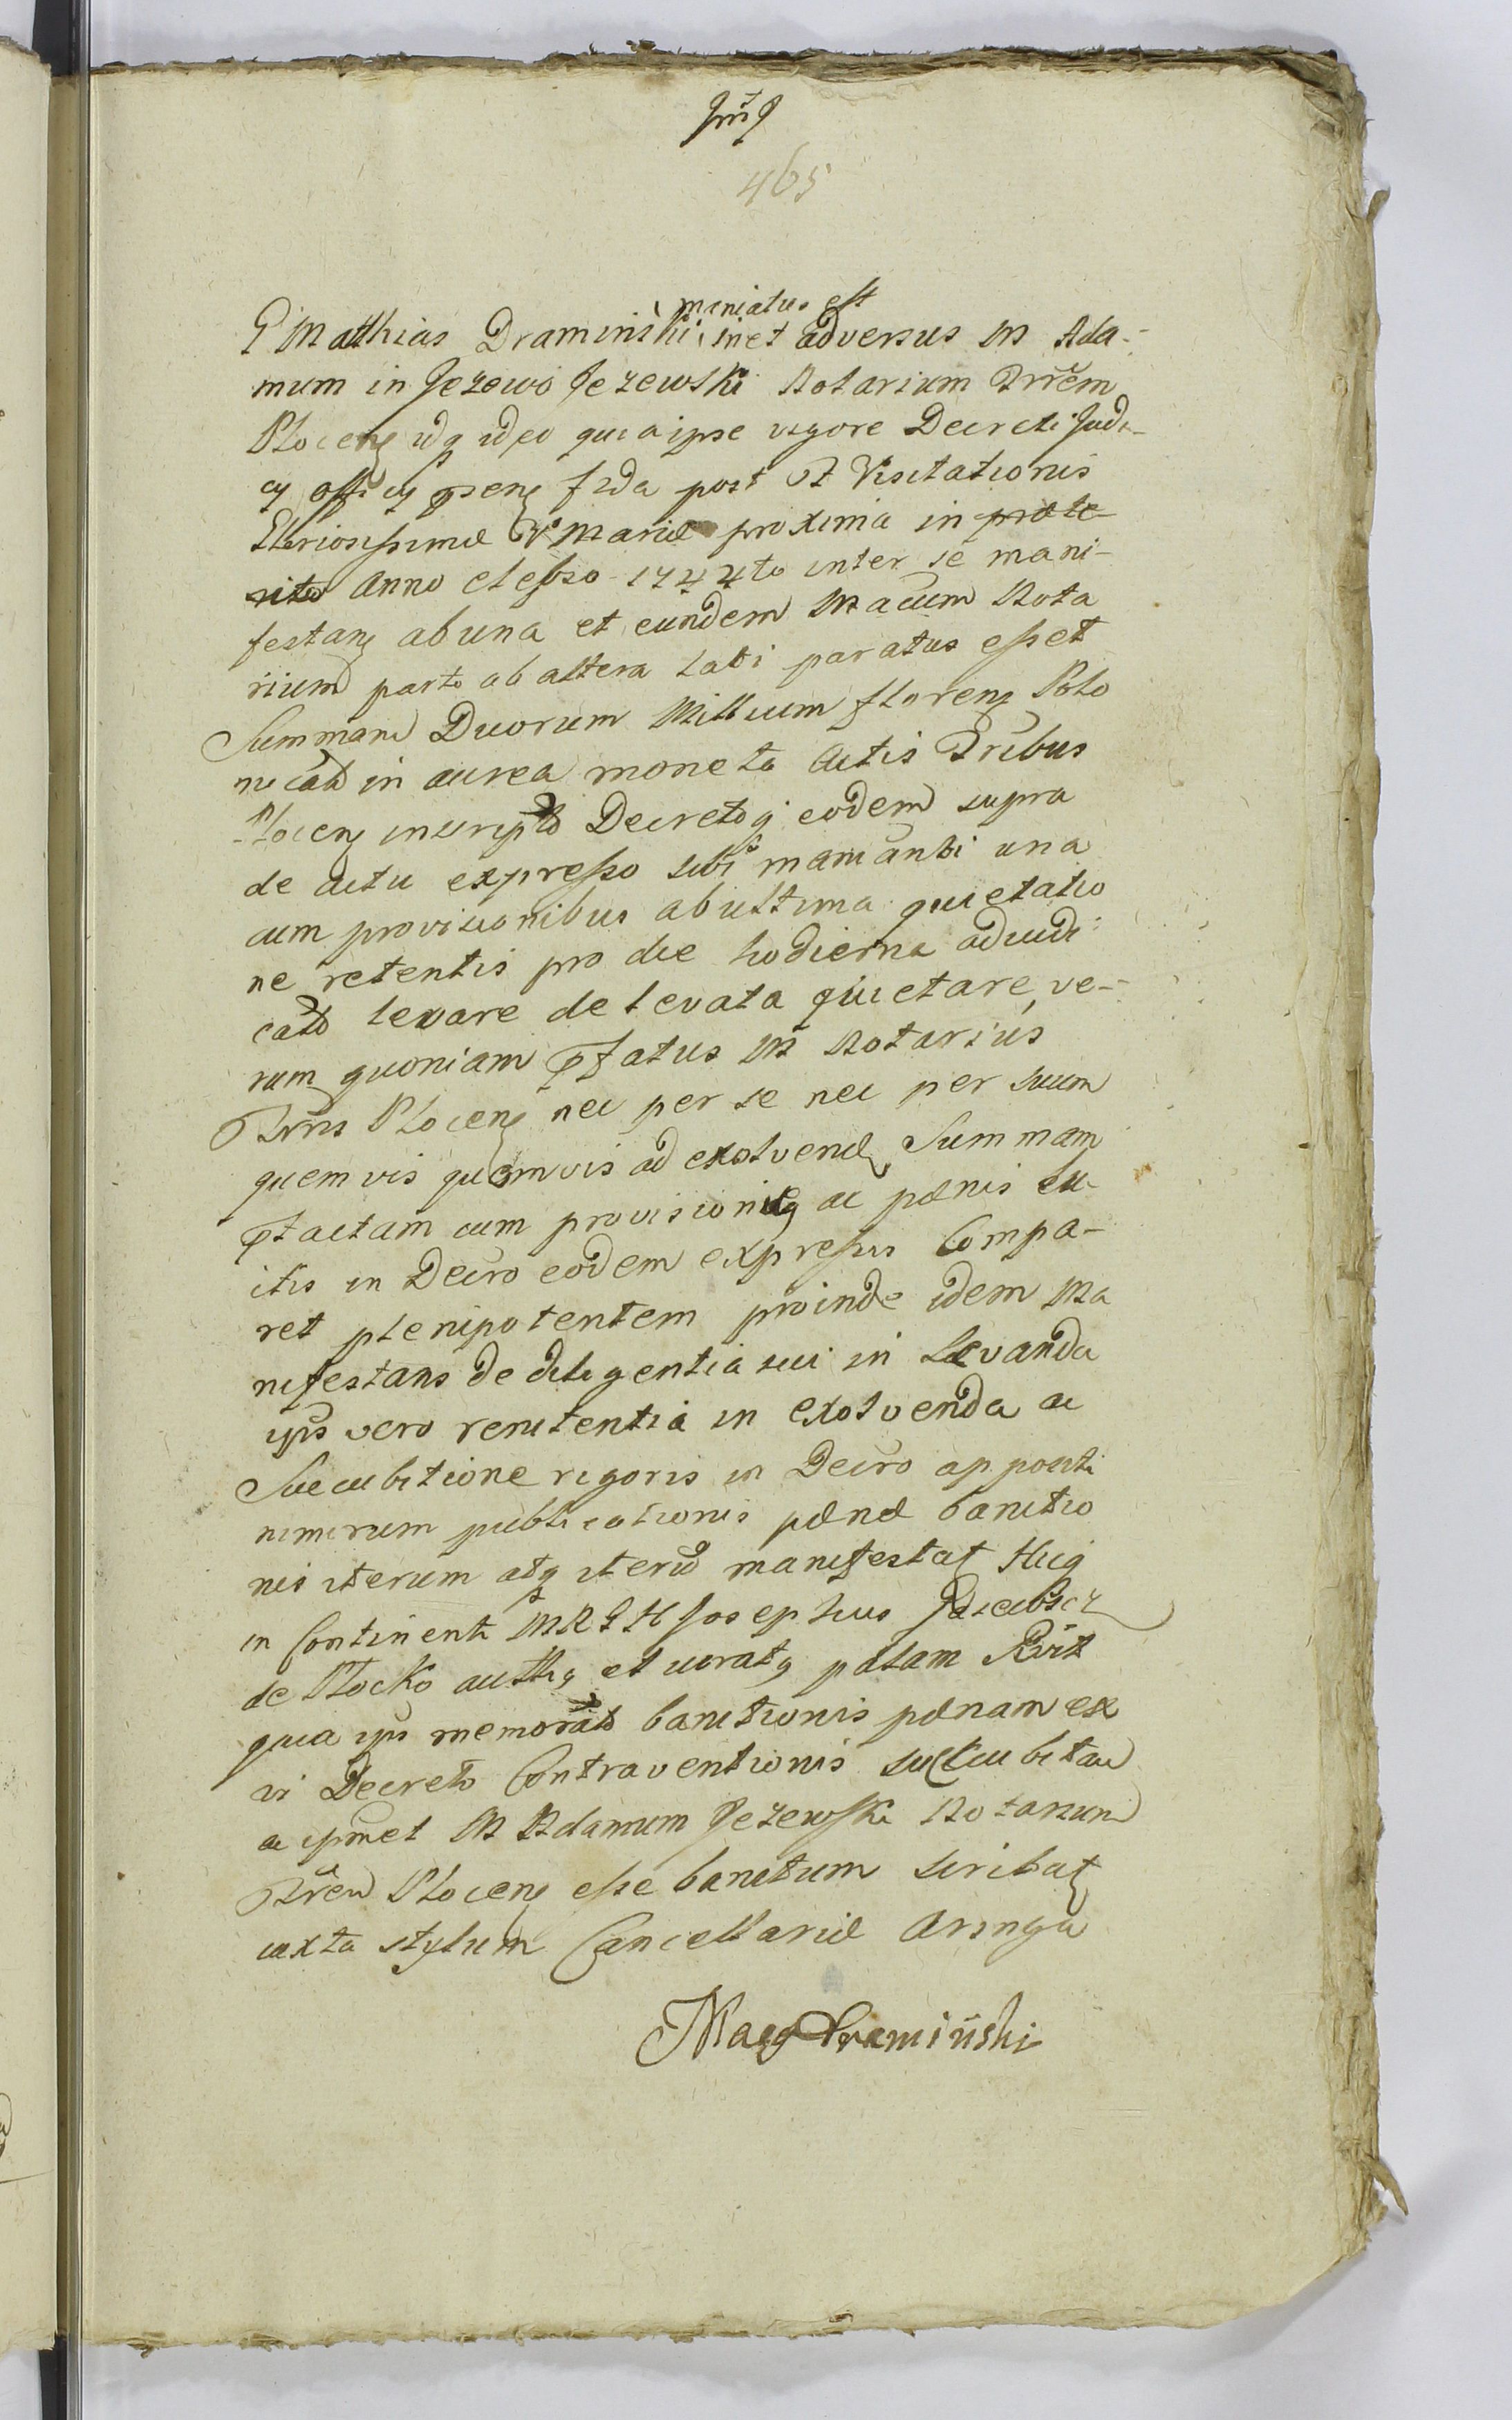 465
maniatus est
G Matthias Draminski met adversus M Ada-
mum in Jezewo Jezewski Notarium Trrem
Plocen idq ideo quia ipse vigore Decreti Judi-
cy officy psen fda post F Visitationis
Gloriosissimæ V Mariæ proxima in præte-
rito Anno elapso 1744to inter se mani-
festan ab una et eundem Macum Nota
rium parte ab altera lati paratus esset
Summam Duorum Millium floren Polo
nicali in aurea moneta Actis Tribus
Plocen inscripto Decretoq eodem supra
de actu expresso sibi maniānti una
cum provisionibus ab ultima quietatio
ne retentis pro die hodierna adiudi-
cato levare de levata quietare, ve-
rum quoniam pfatus M Notarius
Trris Plocen nec per se nec per suum
quem vis quomvis ad exolvend Summam
pfactam cum provisionibq ac pænis lu-
itis in Decro eodem expressis Compa-
ret plenipotentem proinde idem Ma
nifestans de diligentia sui in Levanda
ipis vero renitentia in exolvenda ac
Succubitione rigoris in Decro appositi
nimirum publicationis pænæ banitio
nis iterum atq iterū manifestat Huiq
in Continenti MRGH Josephus
de Płocko authq et iuratq palam Rvit
quia ips memorato banitionis pænam ex
vi Decreto Contraventionis succubitam
ac ipmet M Adamum Jezewski Notarium
Trrem Plocen esse banitum scribat
iuxta stylum Cancellariæ Arenga
Draminski